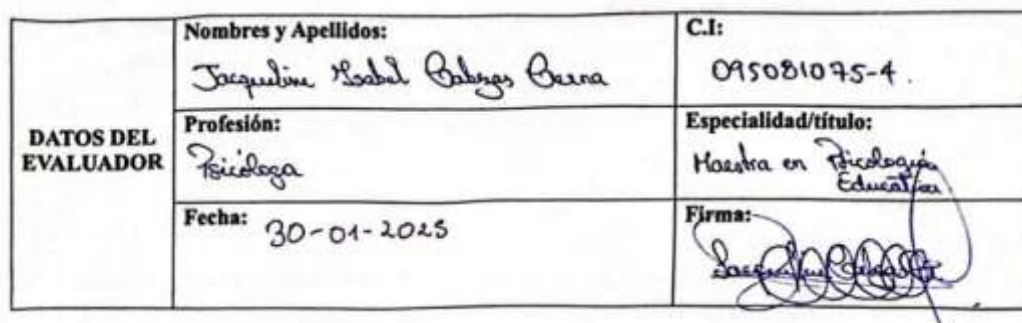 DATOS DEL
EVALUADOR
Nombres y Apellidos:
Jacqueline Isabel
C.I:
095081075-4.
Profesión:
Psicóloga
Especialidad/título:
Maestra en Psicología
Educativa
Fecha: 30-01-2025
Firma: